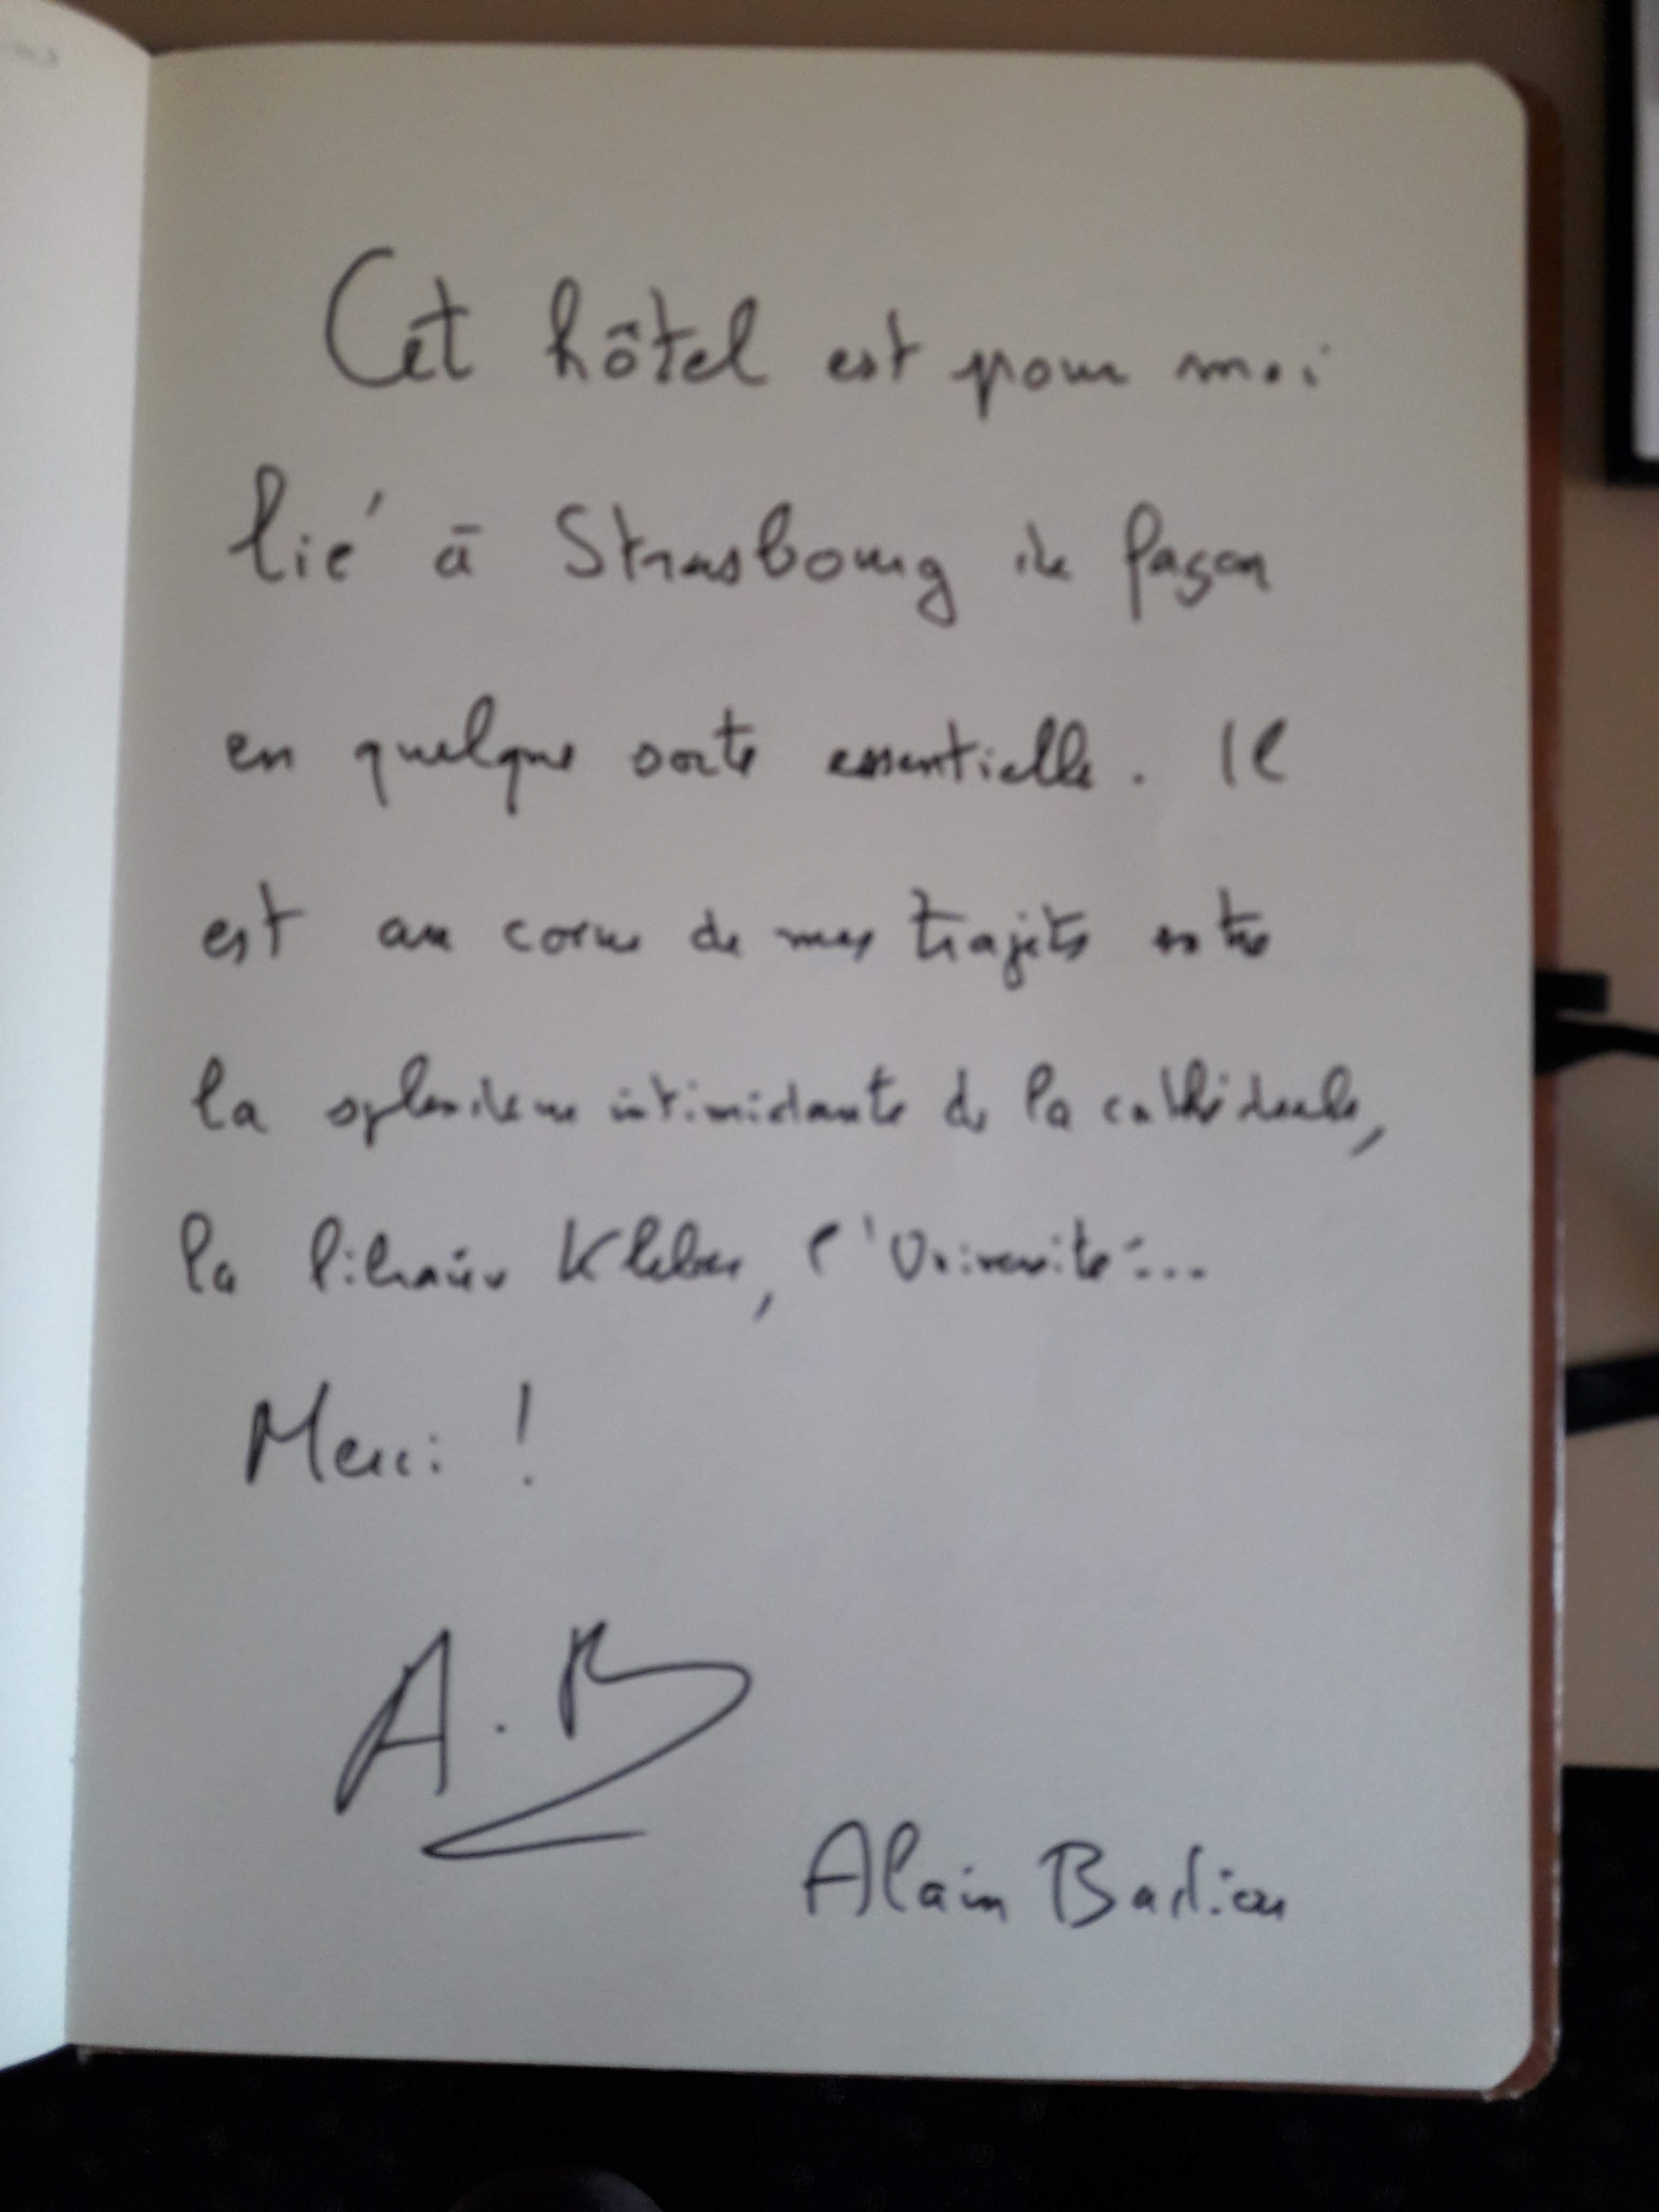 Cet hôtel est pour moi
lié à Strasbourg de façon
en quelque sorte essentielle. Il
est au cœur de mes trajets entre
la splendeur intimidante de la cathédrale,
la librairie Kleber, l'Université...
Merci !
A.B
Alain Badiou